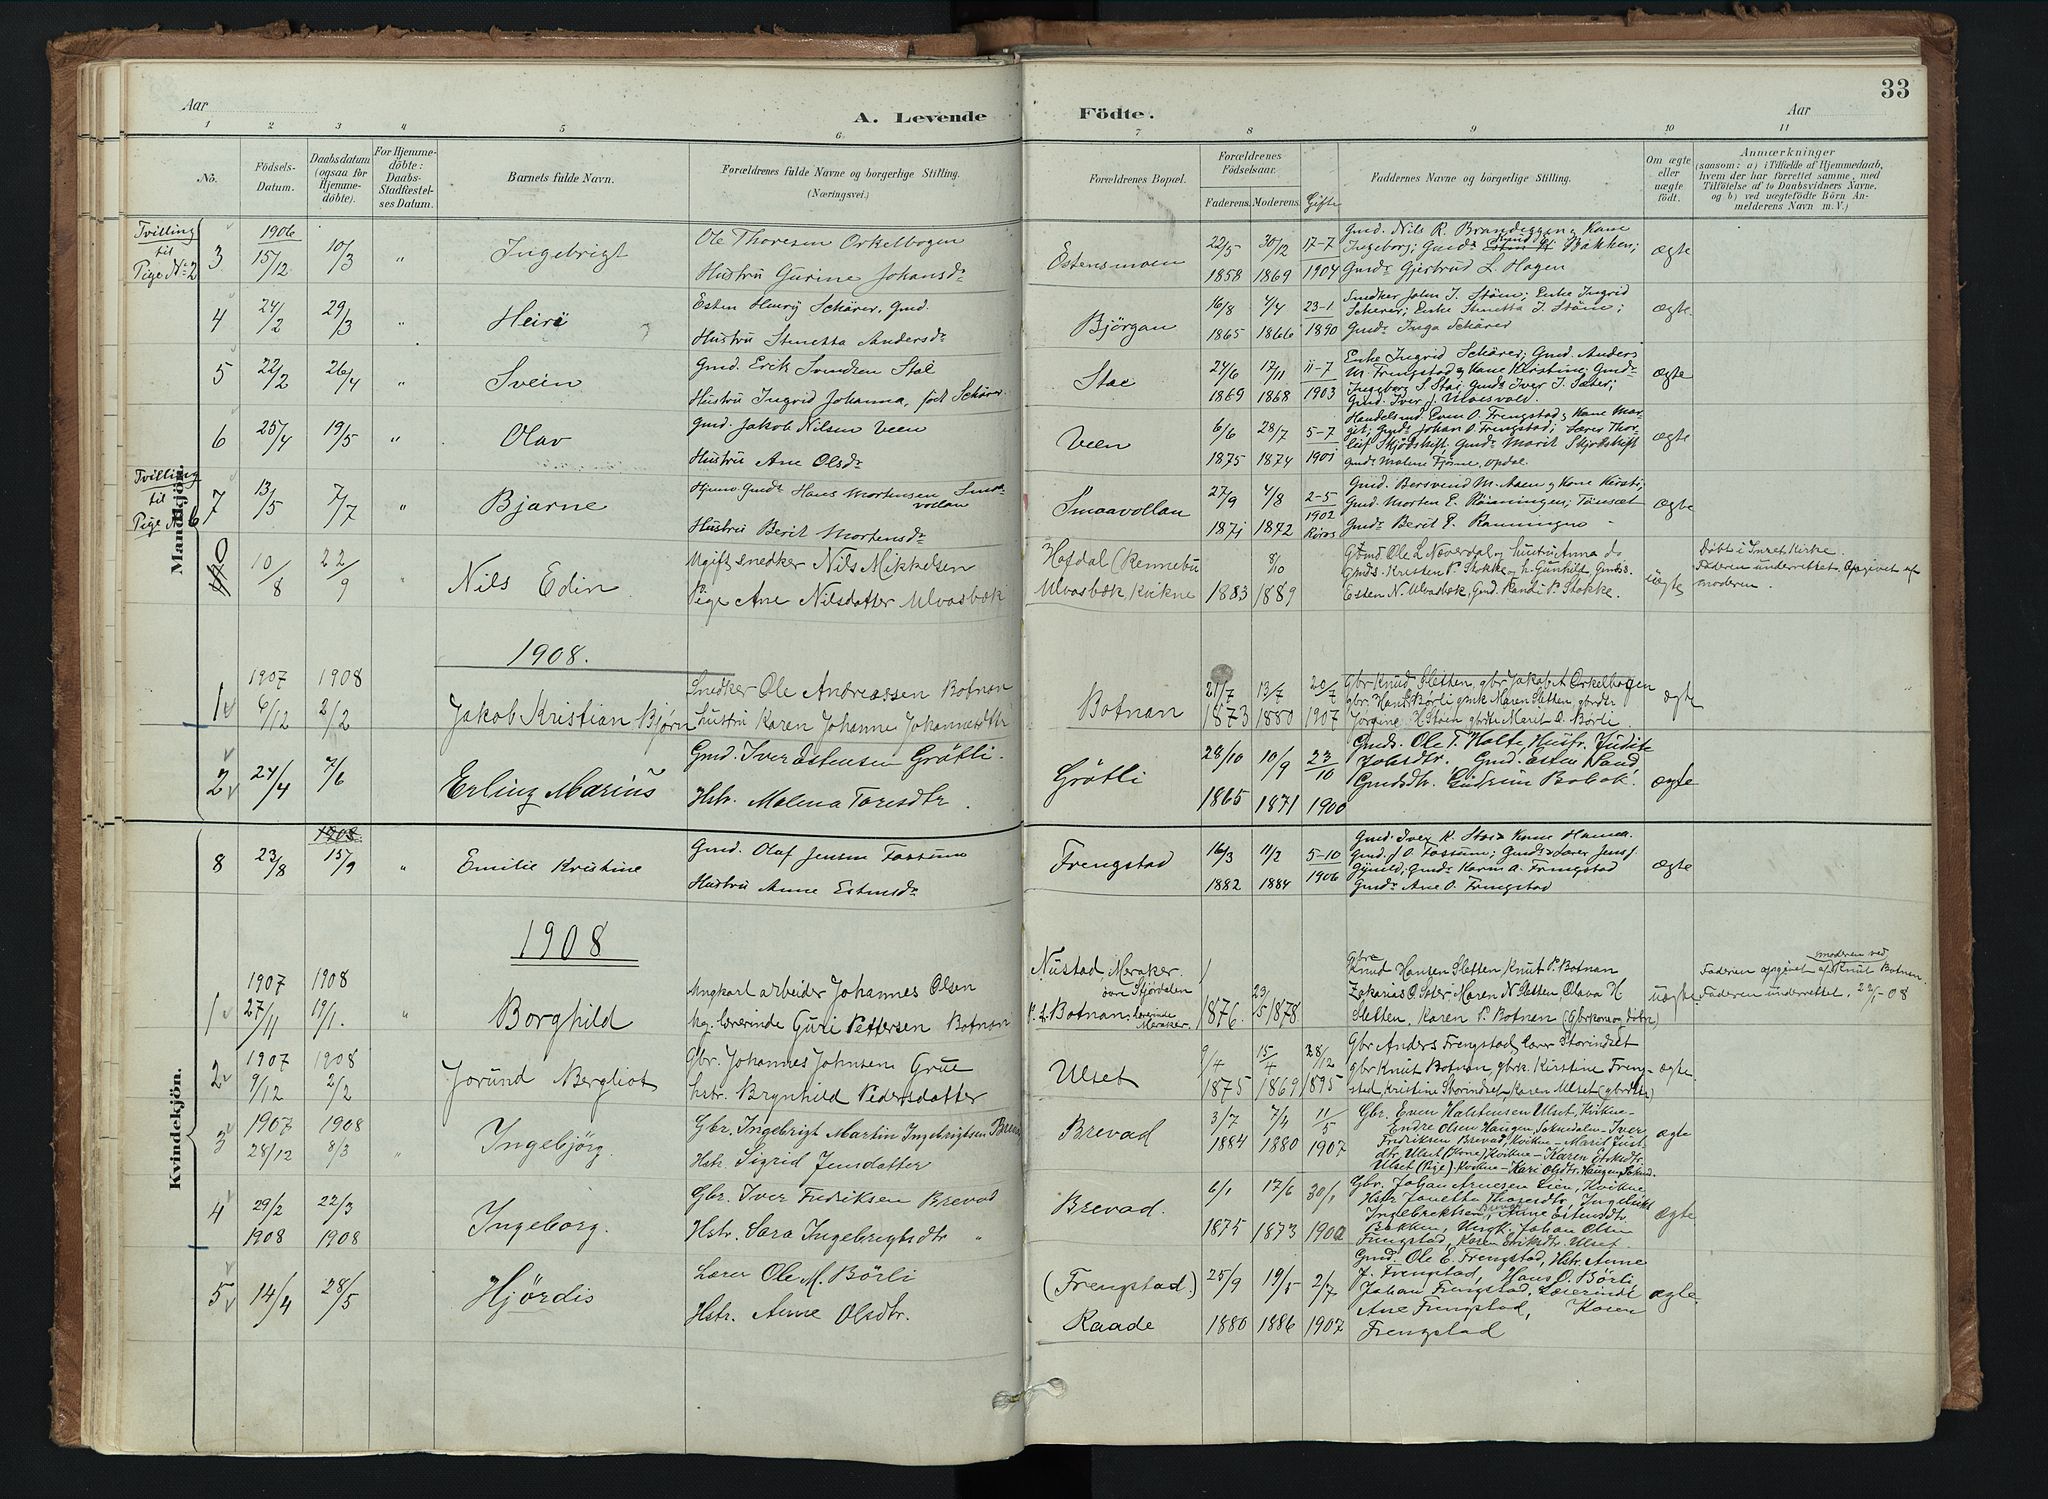 33
Aar
A. Levende
Födte.
Aar
1 2 3 4 5 6 7 8 9 10 11
No.
Födsels-
Datum.
Daabsdatum
(ogsaa for
Hjemme-
döbte).
For Hjemme-
döbte:
Daabs-
Stadfæstel-
ses Datum.
Barnets fulde Navn.
Forældrenes fulde Navne og borgerlige Stilling.
(Næringsvei.)
Forældrenes Bopæl.
Forældrenes
Födselsaar.
Faderens. Moderens.
Gifte
Faddernes Navne og borgerlige Stilling.
Om ægte
eller
uægte
födt.
Anmærkninger
(saasom: a) i Tilfælde af Hjemmedaab,
hvem der har forrettet samme, med
Tilföielse af to Daabsvidners Navne,
og b) ved uægtefödte Börn An-
melderens Navn m. V.)
Mandkjön.
Tvilling
til
Pige No 2
3
1906
15/12
10/3
"
Ingebrigt
Ole Thoresen Orkelbogen
Hustru Gurine Johansdr
Estensmoen
22/5 30/12 17-7
1858 1869 1904
Gmd. Nils R. Brandeggen og Kone
Ingeborg; Gmds Bakken;
Gmds Gjertrud L. Hagen
ægte
4
24/2
29/3
"
Esten Henry Schärer, Gmd.
Hustru Stenetta Andersdr
Björgan
16/8 4/4 23-1
1865 1866 1890
Snedker John J. Stöen; Enke Ingrid
Scherer; Enke Stenetta J. Stöen;
Gmds Inga Schärer
ægte
5
22/2
26/4
"
Svein
Gmd. Erik Svendsen Stai
Hustru Ingrid Johanna, født Schärer
Stai
24/6 17/11 11-7
1869 1868 1903
Enke Ingrid Schärer; Gmd. Anders
M. Frengstad og Kone Kirstine; Gmds
Ingeborg S. Stai; Gmds Iver J. Sæter;
Gmd. Iver J.
ægte
6
25/4
19/5
"
Olav
Gmd. Jakob Nilsen Veen
Hustru Ane Olsdr
Veen
6/6 28/7 5-7
1875 1874 1901
Handelsmd. Even O. Frengstad og Kone Mar-
git; Gmds Johan O. Frengstad; Lærer Thor-
leif Skjødskift, Gmds Marit Skjødskift
Gmds Malene Fjörne, Opdal.
ægte
Tvilling
til
Pige No 6
7
13/5
7/7
"
Bjarne
Gmds Hans Mortensen Smaa-
vollan
Hustru Berit Mortensdr
Smaavollan
27/9 4/8 2-5
1902
1871 1872 Röros
Gmd. Bersvend M. Aasen og Kone Kirsti;
Gmd. Morten E. Rönningen, Tönset
Gmds Berit E. Rönningen
ægte
10/8
22/9
"
Nils Edin
Ugift snedker Nils Mikkelsen
Pige Ane Nilsdatter Ulvasbæk
Hofdal (Rennebu
Ulvasbæk, Kvikne
8/10
1883 1889
Gmd. Ole L. Næverdal og hustru Anna do
Gmds. Kristen P. Stokke og h. Gunhild, Gmds.
Esten N. Ulvasbæk, Gmd. Randi P. Stokke.
uægte
Døbt i Inset Kirke.
Faderen underrettet. Opgivet af
moderen
1908.
1
1907
6/12
1908
2/2
Jakob Kristian Bjørn
Snedker Ole Andreassen Botnan
Hustru Karen Johanne Johannesdtr
Botnan
21/7 13/7 20/7
1873 1880 1907
gbr Knud Sletten, gbr Jakob A Orkelbogen
gbr. Hans Børli gmk Maren Sletten gbrdtr
Jørgine H Støen gbrdtr Marit O. Børli.
ægte
2
24/4
7/6
Erling Marius
Gmd. Iver Estensen Gråtli.
Hstr. Malena Toresdtr.
Gråtli
28/10 10/9 23/10
1865 1871 1900
Gmds. Ole T. Holte, Husfr. Judite
Johsdtr. Gmd. Esten Sand
Gmdsdtr. Gudrun Bobak.
ægte
Kvindekjön.
8
1908
23/8
15/9
"
Emilie Kristine
Gmd. Olaf Jensen Fossum
Hustru Anne Estensdr
Frengstad
16/3 11/2 5-10
1882 1884 1906
Gmd. Iver K. Stai & Kone Hanna.
Gmd. J. O. Fossum; Gmds Lærer Jens J
Gjulld; Gmds Karin A. Frengstad
Gmds Ane O. Frengstad
ægte
1908
1
1907
27/11
1908
19/1.
"
Borghild
Ungkarl arbeider Johannes Olsen
Pig. lærerinde Guri Pettersen Botnan
Nustad, Meraker.
øvre Stjördalen
p. t. Botnan, lærerinde
Meraker.
1876. 23/5 1878
Gbre
Knud Hansen Sletten Knut P. Botnan
Zakarias O. Sæter Maren N Sletten, Olava H
Sletten, Karen P. Botnan (Gbrkone og døtre)
uægte
moderen ved
Faderen opgivet af Knut Botnan.
Faderen underrettet, 22/1-08
2
1907
9/12
1908
2/2
Jorund Bergliot
Gbr. Johannes Johnsen Grue
hstr. Brynhild Pedersdatter
Ulset
9/4 15/4 28/12
1875 1869 1895
Gbr Anders Frengstad, lærer Storindset
gbr Knut Botnan gbrk. Kirstine Freng-
stad, Kristine Storindset, Karen Ulset (gbrdtr)
ægte
3
1907
28/12
1908
8/3
"
Ingebjörg.
Gbr. Ingebrigt Martin Ingebrigtsen Brevad
Hstr. Sigrid Jensdatter
Brevad
3/7 7/4 11/5
1884 1880 1907
Gbr. Even Halstensen Ulset, Kvikne-
Endre Olsen Haugen, Soknedalen - Iver
Fredriksen Brevad, Kvikne - Marit Just-
dtr. Ulset (Kone) Kvikne - Karen Eriksdtr.
Ulset (Pige) Kvikne - Kari Olsdtr. Haugen, Sokned.
ægte
4
29/2
1908
22/3
1908
Ingeborg.
Gbr. Iver Fredriksen Brevad
Hstr. Sara Ingebrigtsdtr "
Brevad.
6/1 17/6 30/1
1875 1873 1900
Gbr. Johan Arnesen Lien, Kvikne
Hstr. Janetta Thoresdtr. Ingebrikt
Ingebrektsen Brevad, Anne Estensdtr
Bakken, Ungk. Johan Olsen
Frengstad, Karen Eriksdtr. Ulset.
ægte
5
14/4
28/5
Hjördis
Lærer Ole M. Börli
Hstr. Anne Olsdtr.
(Frengstad.)
Raade
25/9 19/5 2/7
1880 1886 1907
Gmd. Ole E. Frengstad, Hstr. Anne
J. Frengstad, Hans O. Börli,
Johan Frengstad, Lærerinde
Ane Frengstad, Karen
Frengstad
ægte.